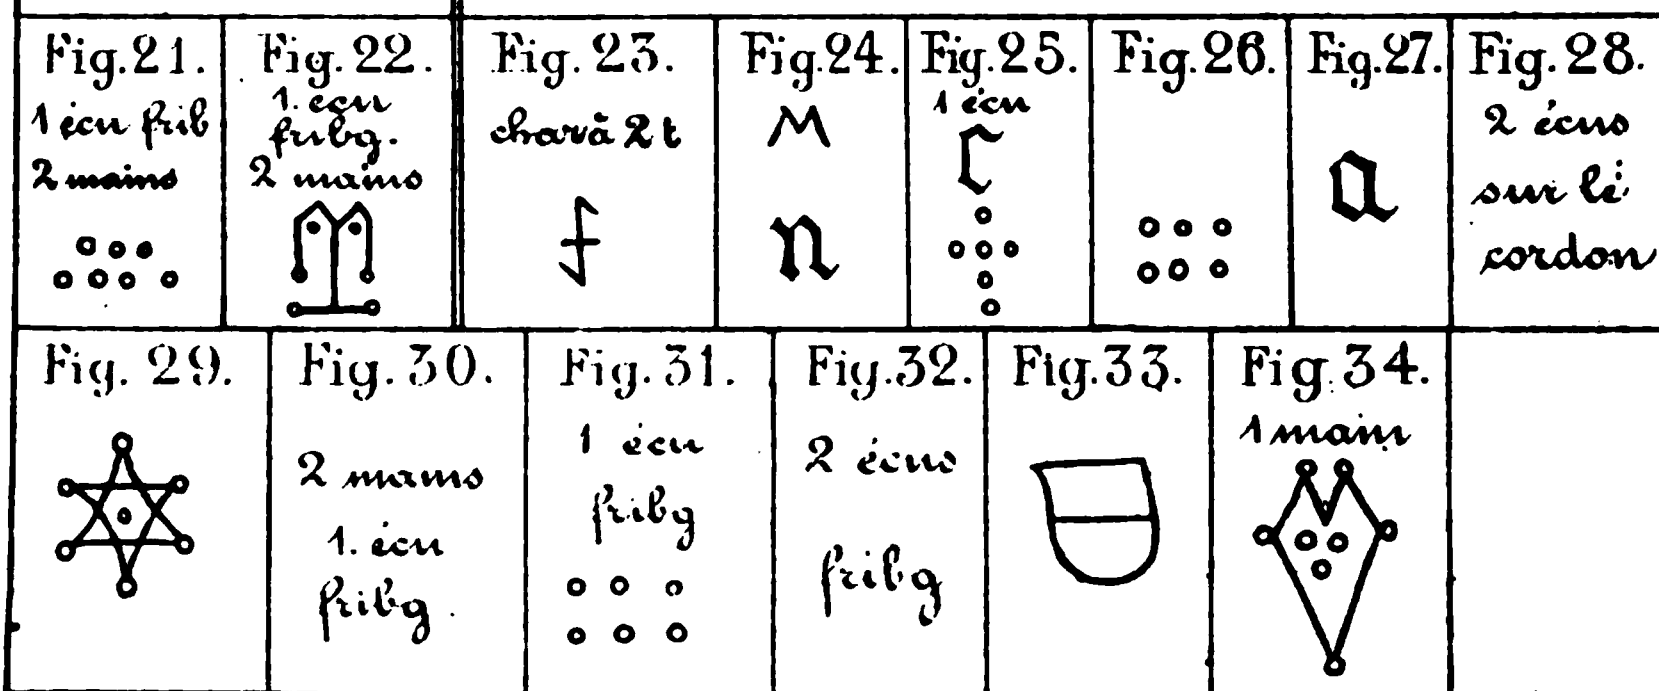 Fig.21.
1 écu frib
2 mains
Fig.22.
1. écu
fribg.
2 mains
Fig.23.
charà 2 t
Fig.24.
M
n
Fig.25.
1 écu
C
Fig.26.
Fig.27.
a
Fig.28.
2 écus
sur le
cordon
Fig.29.
Fig.30.
2 mains
1. écu
fribg.
Fig.31.
1 écu
fribg
Fig.32.
2 écus
fribg
Fig.33.
Fig.34.
1 main